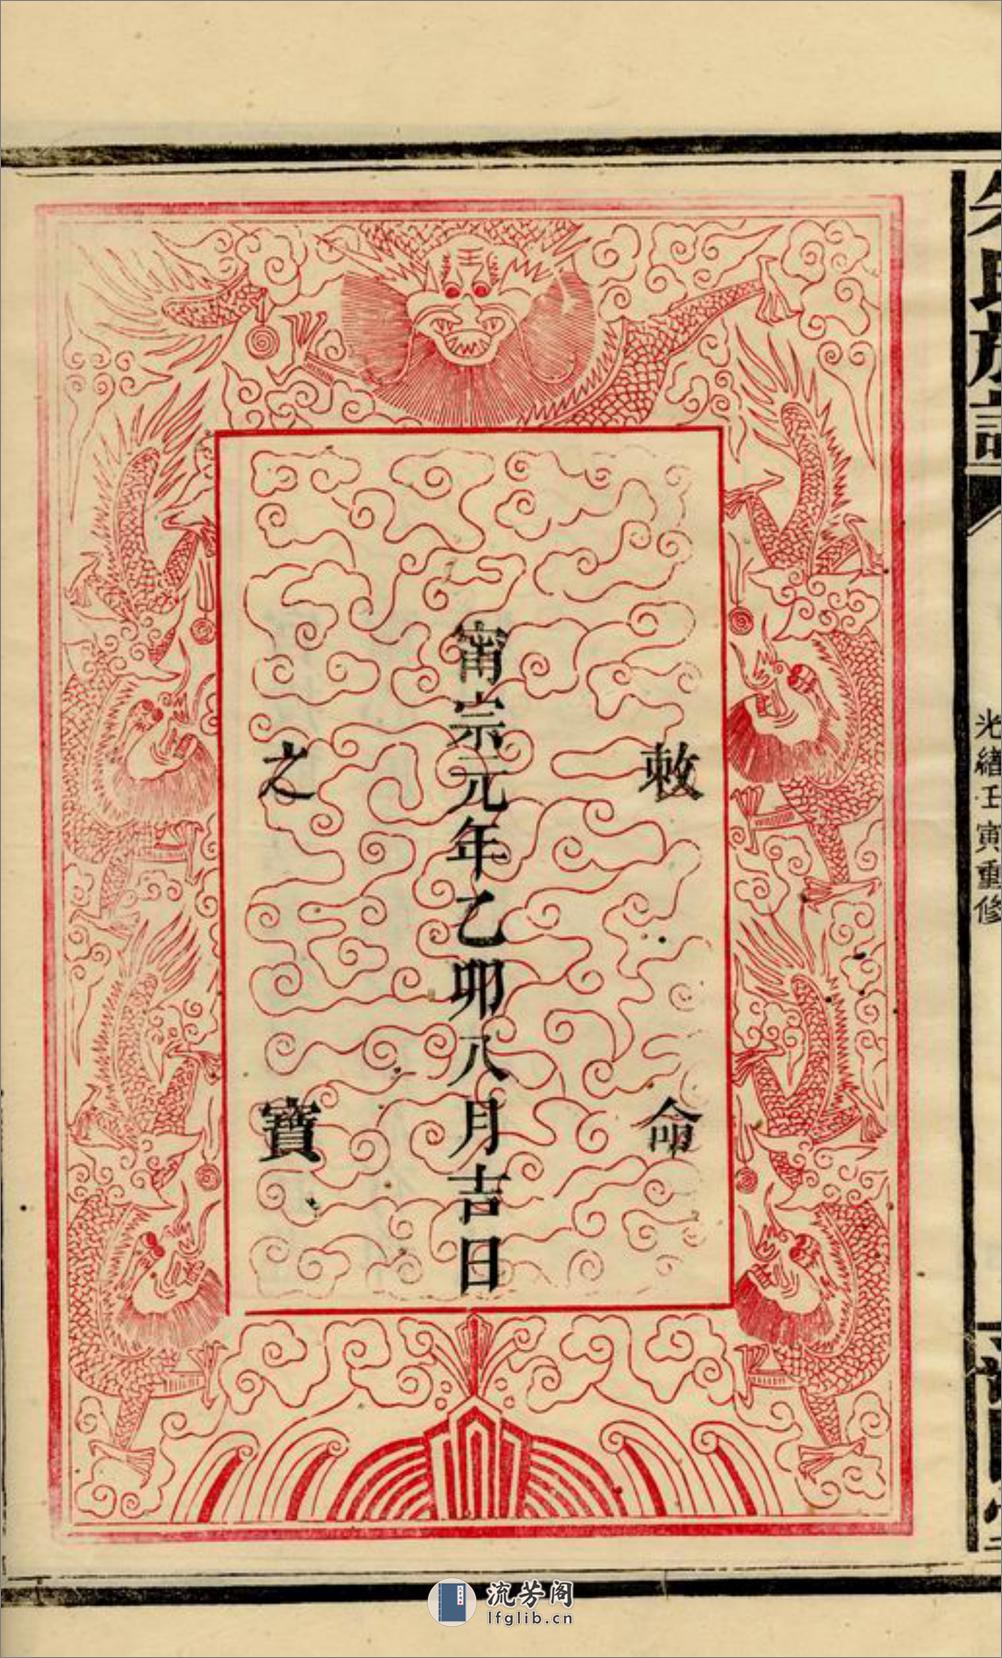 敕命
甯宗元年乙卯八月吉日
之寶
氏族譜
光緒壬寅重修
流芳阁
lfglib.cn